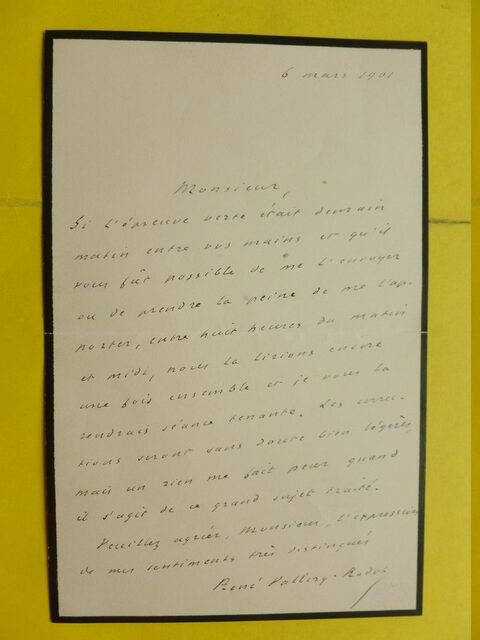 6 mars 1901
Monsieur,
Si l'épreuve verte était demain
matin entre vos mains et qu'il
vous fût possible de me l'envoyer
ou de prendre la peine de me l'ap-
porter, entre huit heures du matin
et midi, nous la lirions encore
une fois ensemble et je vous la
rendrais séance tenante. Les correc-
tions seront sans doute bien légères,
mais un rien me fait peur quand
il s'agit de ce grand sujet traité.
Veuillez agréer, Monsieur, l'expression
de mes sentiments très distingués
René Vallery-Radot